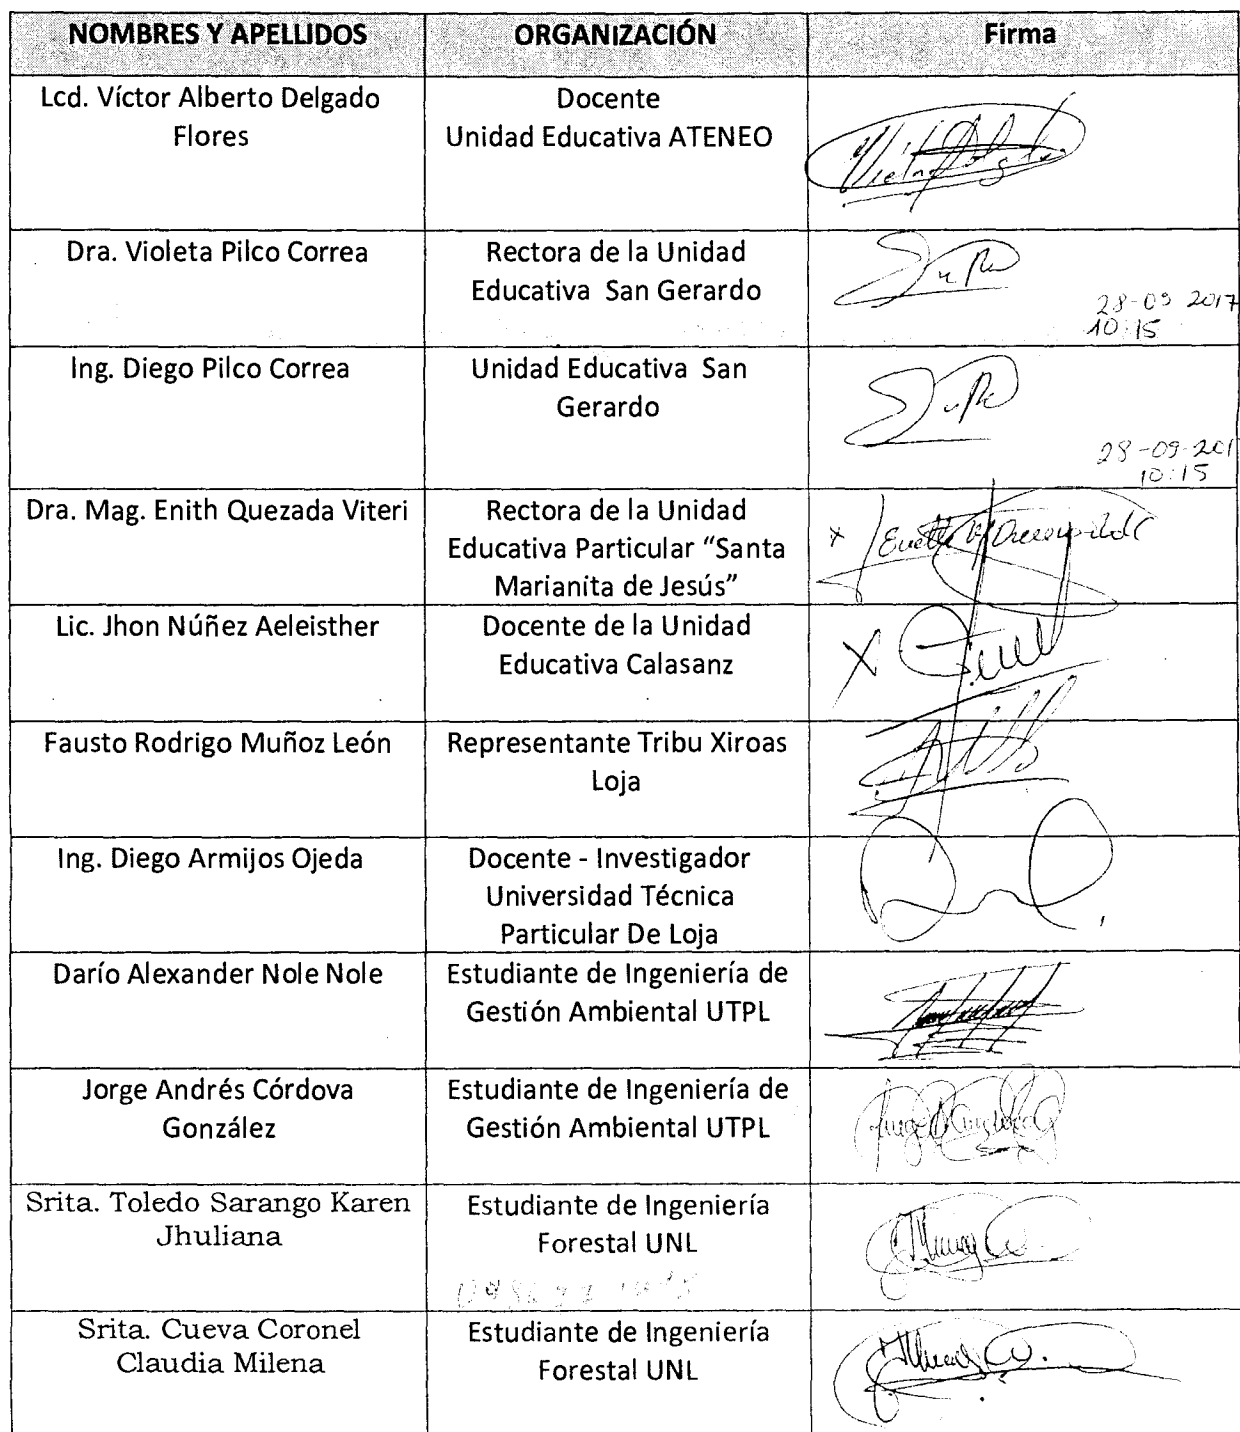 NOMBRES Y APELLIDOS ORGANIZACIÓN Firma
Lcd. Víctor Alberto Delgado
Flores
Docente
Unidad Educativa ATENEO
Dra. Violeta Pilco Correa
Rectora de la Unidad
Educativa San Gerardo
28-09 2017
10:15
Ing. Diego Pilco Correa
Unidad Educativa San
Gerardo
28-09-201
10:15
Dra. Mag. Enith Quezada Viteri
Rectora de la Unidad
Educativa Particular “Santa
Marianita de Jesús”
X
Lic. Jhon Núñez Aeleisther
Docente de la Unidad
Educativa Calasanz
X
Fausto Rodrigo Muñoz León
Representante Tribu Xiroas
Loja
Ing. Diego Armijos Ojeda
Docente - Investigador
Universidad Técnica
Particular De Loja
Darío Alexander Nole Nole
Estudiante de Ingeniería de
Gestión Ambiental UTPL
Jorge Andrés Córdova
González
Estudiante de Ingeniería de
Gestión Ambiental UTPL
Srita. Toledo Sarango Karen
Jhuliana
Estudiante de Ingeniería
Forestal UNL
Srita. Cueva Coronel
Claudia Milena
Estudiante de Ingeniería
Forestal UNL